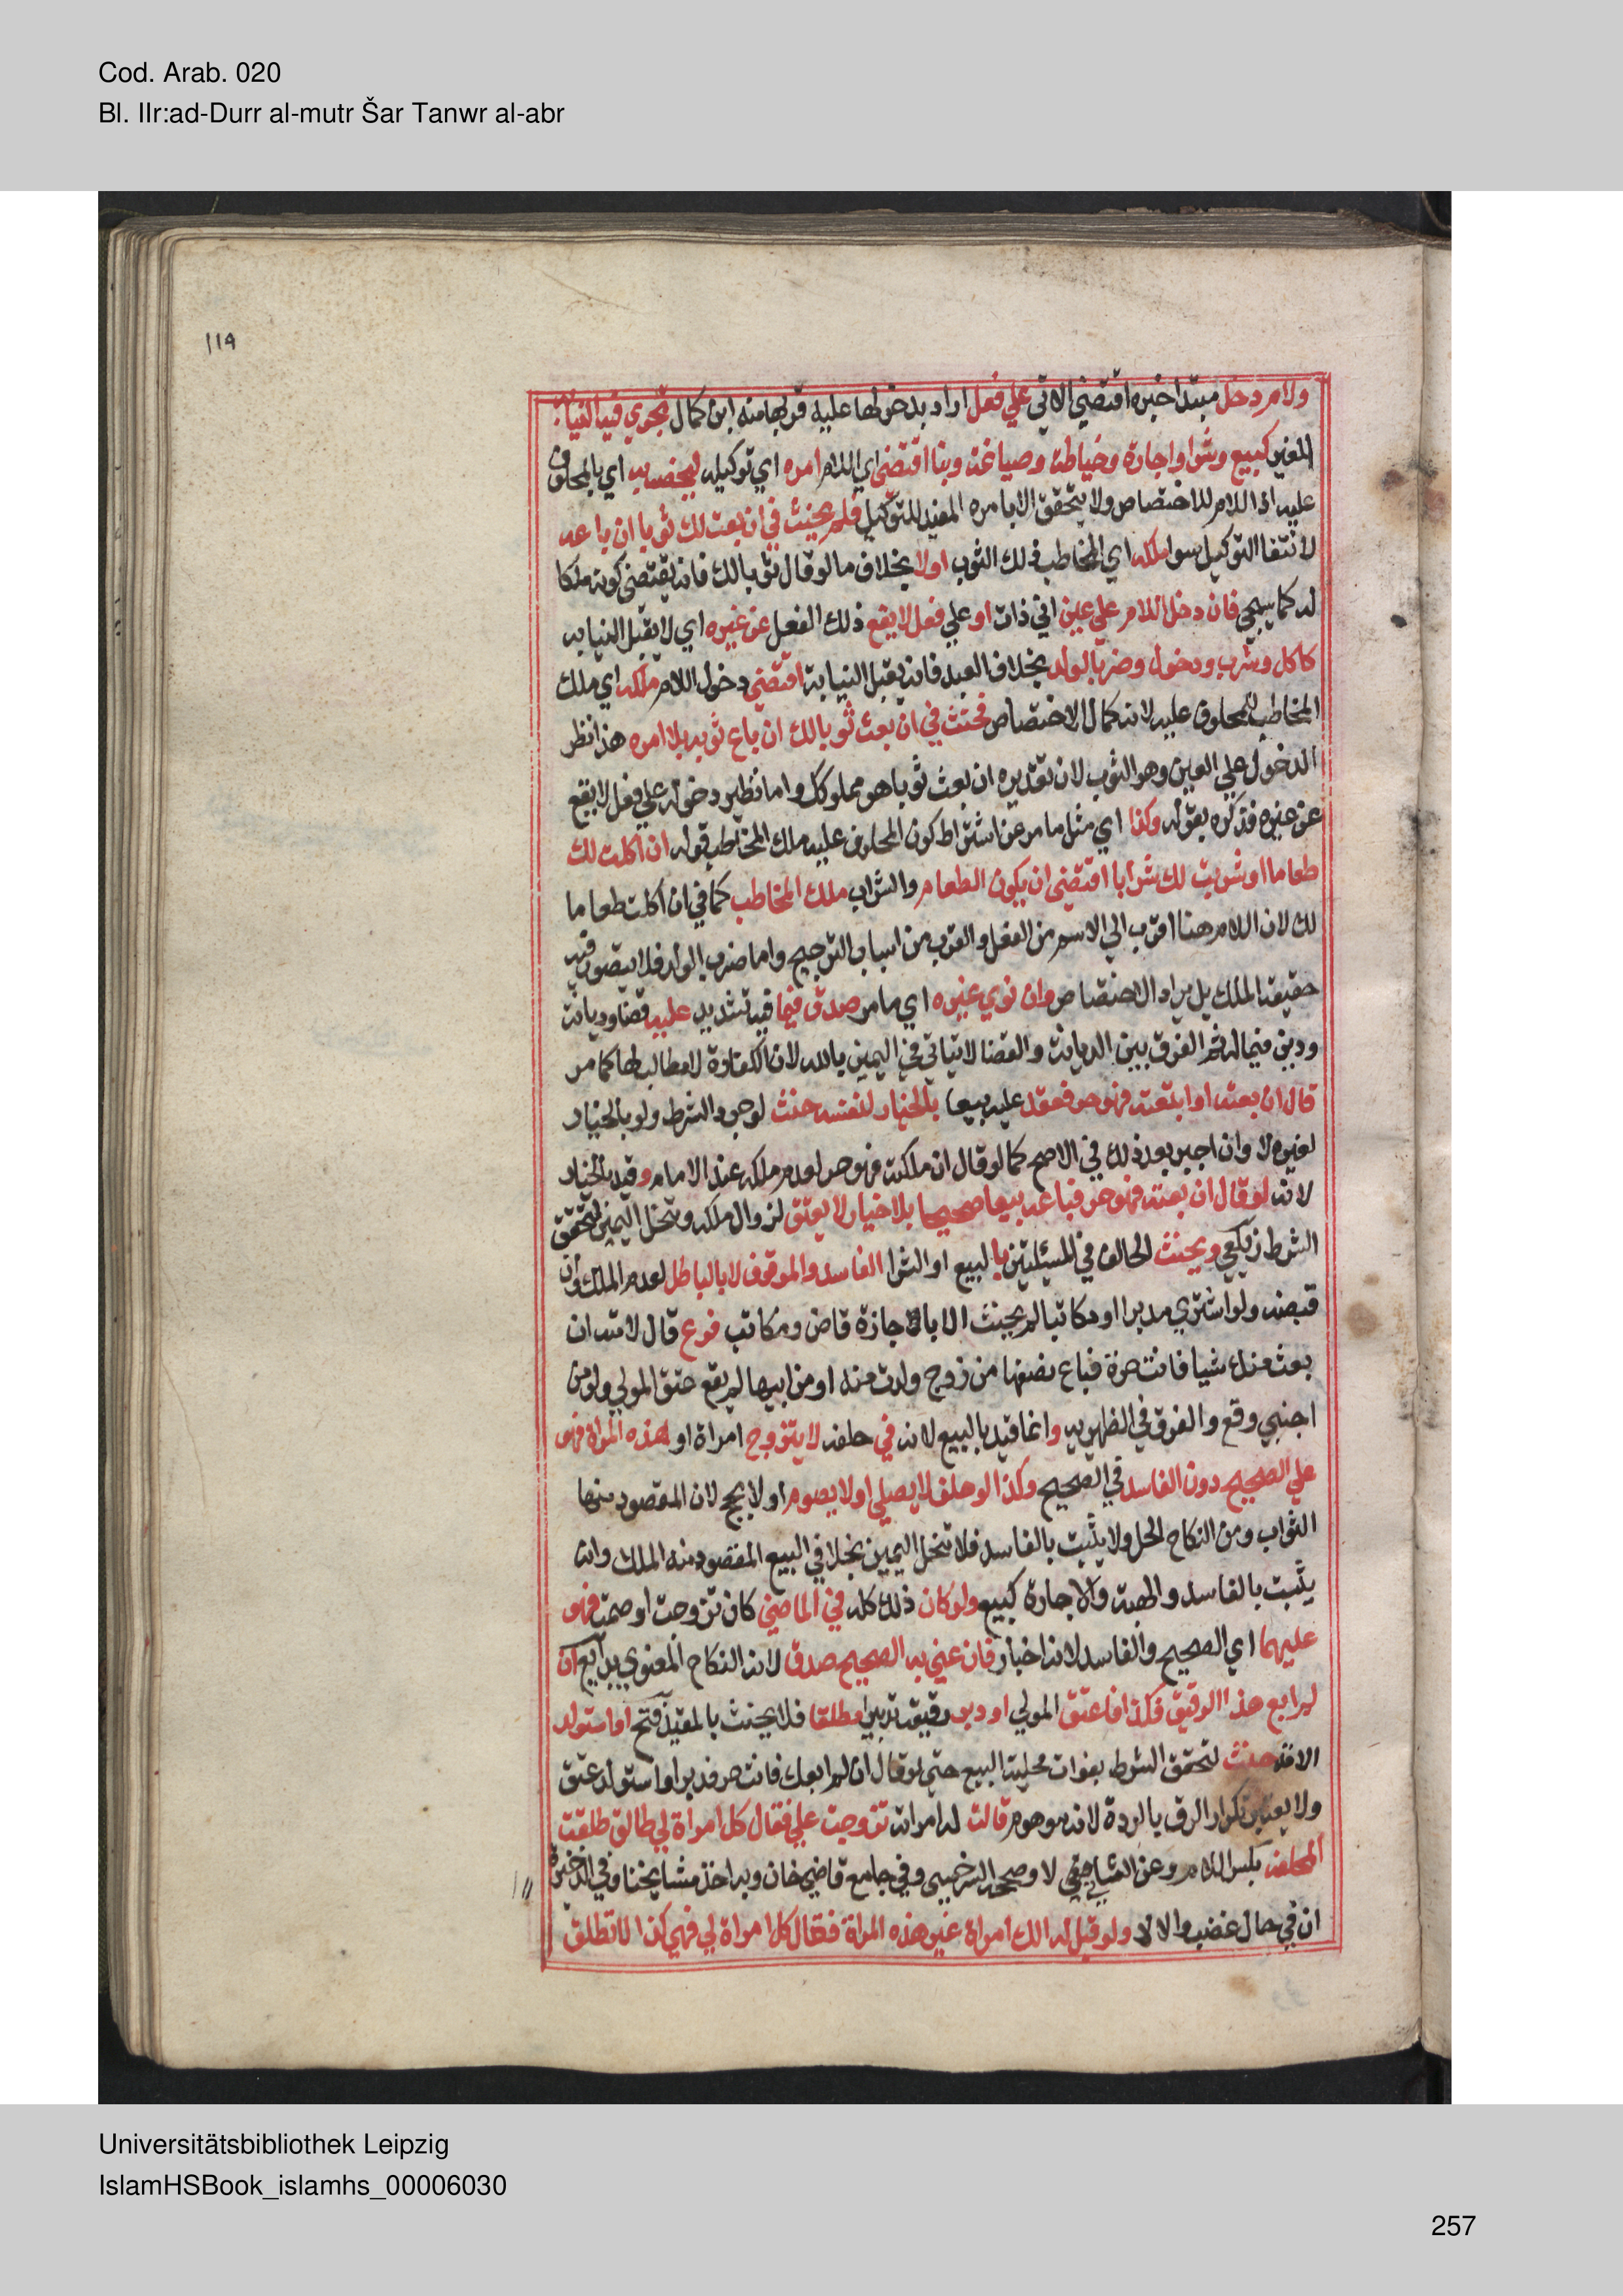 Cod. Arab. 020
Bl. IIr:ad-Durr al-mutr Šar Tanwr al-abr
١١٩
ولام دخل مبتدا خبره اقتضي الاتي علي فعل اراد بدخولها عليه قربها منه ابن كمال تجري فيه النيابة
للغير كبيع وشرا واجارة وخياطة وصياغة وبنا اقتضي اي اللام امره اي توكيله ليخصه به اي بالمحلوف
عليه اذ اللام للاختصاص ولا يتحقق الا بامره المفيد للتوكيل فلم يحنث في ان بعت لك ثوبا ان باعه
لانتفا التوكيل سوا ملكه اي المخاطب ذلك الثوب اولا بخلاف ما لو قال ثوبا لك فانه يقتضي كونه ملكا
له كما سيجي فان دخل اللام علي عين اي ذات او علي فعل لا يقع ذلك الفعل عن غيره اي لا يقبل النيابه
كاكل وشرب ودخول وضرب الولد بخلاف العبد فانه يقبل النيابة اقتضي دخول اللام ملكه اي ملك
المخاطب للمحلوف عليه لانه كمال الاختصاص فحنث في ان بعت ثوبا لك ان باع ثوبه بلا امره هذا نظر
الدخول علي العين وهو الثوب لان تقديره ان بعت ثوبا هو مملوكك واما نظير دخوله علي فعل لا يقع
عن غيره فذكره بقوله وكذا اي مثل ما مر من اشتراط كون المحلوف عليه ملك المخاطب قوله ان اكلت لك
طعاما او شربت لك شرابا اقتضي ان يكون الطعام والشراب ملك المخاطب كما في ان اكلت طعاما
لك لان اللام هنا اقرب الي الاسم من الفعل والقرب من اسباب الترجيح واما ضرب الولد فلا يتصور فيه
حقيقة الملك بل يراد الاختصاص وان نوي غيره اي ما مر صدق فيما فيه تشديد عليه قضا وديانة
ودين فيما له ثم الفرق بين الديانة والقضا لا يتاتي في اليمين بالله لان الكفارة لا مطالب لها كما مر
قال ان بعته او ابتعته فهو حر فعقد عليه بيعا بالخيار لنفسه حنث لوجود الشرط ولو بالخيار
لغيره لا وان اجيز بعد ذلك في الاصح كما لو قال ان ملكته فهو حر لعدم ملكه عند الامام وقيد بالخيار
لانه لو قال ان بعته فهو حر فباعه بيعا صحيحا بلا خيار لا يعتق لزوال ملكه وتنحل اليمين لتحقق
الشرط زيلعي ويحنث الحالف في المسئلتين بالبيع او الشرا الفاسد والموقوف لا بالباطل لعدم الملك وان
قبضه ولو اشتري مدبرا او مكاتبا لم يحنث الا باجازة قاض ومكاتب فرع قال لامته ان
بعت منك شيا فانت حرة فباع نصفها من زوج ولدت منه او من ابيها لم يقع عتق المولي ولو من
اجنبي وقع والفرق في الظهيريه وانما قيد بالبيع لانه في حلفه لا يتزوج امراة او هذه المراة فهو
علي الصحيح دون الفاسد في الصحيح وكذا لو حلف لا يصلي او لا يصوم او لا يحج لان المقصود منها
الثواب ومن النكاح الحل ولا يثبت بالفاسد فلا تنحل اليمين بخلاف البيع المقصود منه الملك وانه
يثبت بالفاسد والهبة والاجارة كبيع ولو كان ذلك كله في الماضي كان تزوجت او صمت فهو
عليهما اي الصحيح والفاسد لانه اخبار فان عني به الصحيح صدق لانه النكاح المعنوي بدايع ان
لم ابع هذا الرقيق فكذا فاعتق المولي او دبر رقيقه تدبيرا مطلقا فلا يحنث بالمقيد فتح او استولد
الامة حنث لتحقق الشرط بفوات محلية البيع حتي لو قال ان لم ابعك فانت حر فدبر او استولد عتق
ولا يعتبر تكرار الرق بالردة لانه موهوم قالت له امراته تزوجت علي فقال كل امراة لي طالق طلقت
المحلفة بكسر اللام وعن الثاني لا وصححه السرخسي وفي جامع قاضي خان وبه اخذ مشايخنا وفي الذخيرة
ان في حال غضب والا لا ولو قيل له الك امراة غير هذه المراة فقال كل امراة لي فهي كذا لا تطلق
Universitätsbibliothek Leipzig
IslamHSBook_islamhs_00006030
257